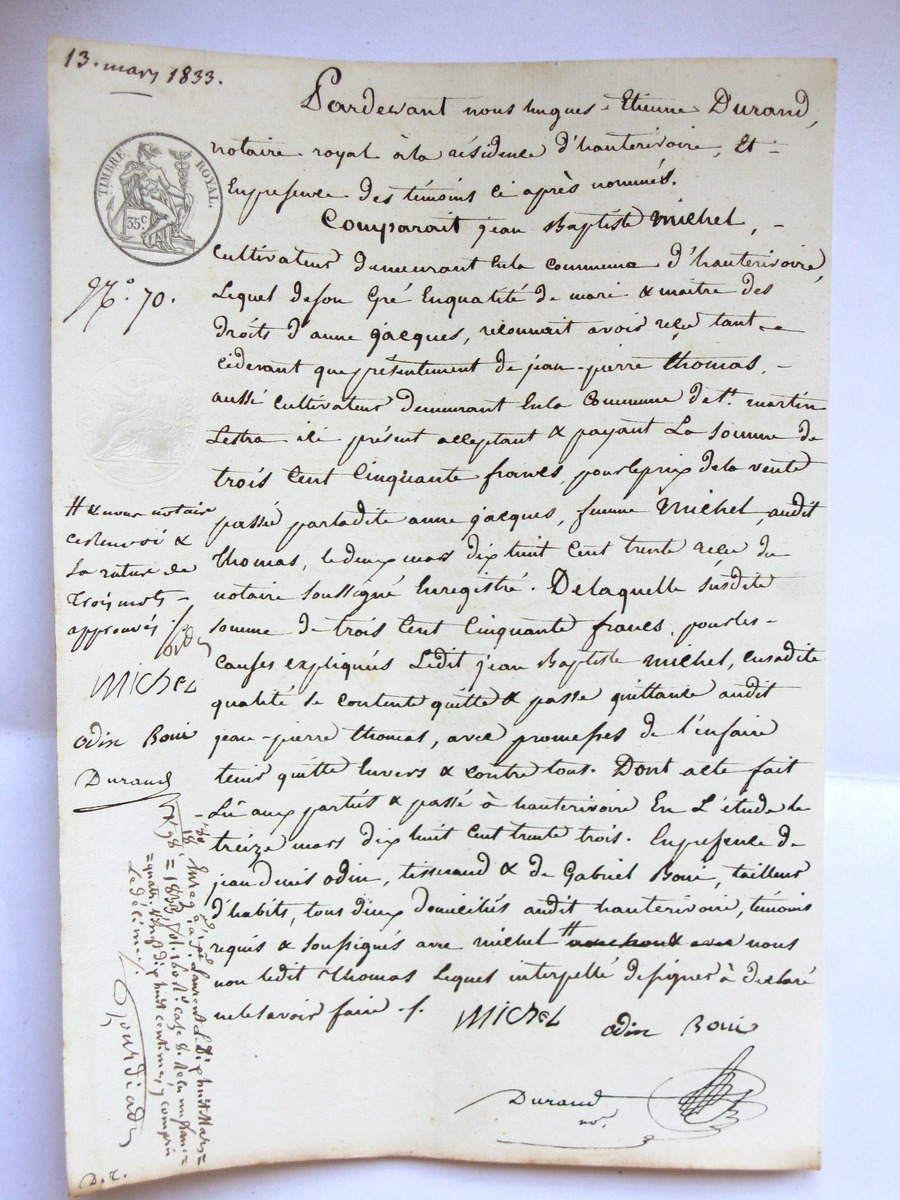 13. mars 1833.
TIMBRE ROYAL.
35.c
N.o 70.
Pardevant nous hugues-Etienne Durand,
notaire royal à la résidence d'hauterivoire, Et-
En presence des témoins ci après nommés.
Comparait jean Baptiste Michel,-
Cultivateur demeurant En la commune d'hauterivoire
Lequel de son Gré En qualité de mari & maitre des
droits d'anne jacques, reconnait avoir reçu tant-
cidevant que présentement de jean-pierre thomas,-
aussi cultivateur demeurant En la commune de st. martin
Lestra ici présent acceptant & payant La somme de
trois Cent Cinquante francs, pour le prix de la vente
passée par ladite anne jacques, femme Michel, audit
thomas, le deux mars dix huit Cent trente reçu du
notaire soussigné Enregistré. De laquelle susdite
somme de trois Cent Cinquante francs, pour les-
Causes expliquées Ledit jean Baptiste Michel, en sadite
qualité se contente quitte & passe quittance audit
jean-pierre thomas, avec promesses de l'en faire
tenir quitte Envers & contre tous. Dont acte fait
Lû aux parties & passé à hauterivoire En L'étude le
treize mars dix huit cent trente trois. En presence de
jean denis odin, tisserand & de Gabriel Boni, tailleur
d'habits, tous deux domiciliés audit hauterivoire, témoins
requis & soussignés avec michel # nous
non ledit thomas Lequel interpellé de signer à declaré
ne le savoir faire ./.
MICHEL
odin Boni
Durand
no.re
# & nous notaire
ce renvoi &
La rature de
trois mots-
approuvés ./.
MICHEL
odin Boni
Durand
Enreg.é à St Laurent Le Dix huit Mars=
=1833 fol. 160 R.o case 8. Reçu un franc=
=quatr. vingt dix huit centimes y compris
Le décime ./.
D. T.